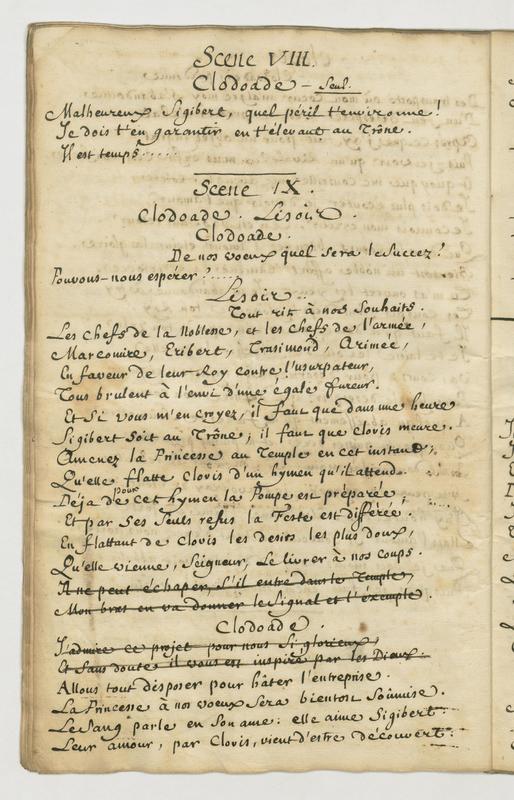 Scene VIII.
Clodoade - Seul.
Malheureux Sigibert, quel péril t'environne!
Je dois t'en garantir en t'élevant au Trône.
Il est temps.....
Scene IX.
Clodoade. Lisoir.
Clodoade.
De nos voeux quel sera le Succez?
Pouvons-nous espérer?.....
Lisoir...
Tout rit à nos Souhaits.
Les chefs de la Noblesse, et les chefs de l'armée,
Marcomire, Eribert, Trasimond, Arimée,
En faveur de leur Roy contre l'usurpateur,
Tous brulent à l'envi d'une égale fureur.
Et Si vous m'en croyez, il faut que dans une heure
Sigibert Soit au Trône; il faut que Clovis meure.
Amenez la Princesse au Temple en cet instant;
Qu'elle flatte Clovis d'un hymen qu'il attend.
Déja pour cet hymen la Pompe est préparée,
Et par Ses Seuls refus la Feste est différée.
En flattant de Clovis les desirs les plus doux,
Qu'elle vienne, Seigneur, Le livrer à nos coups.
Il ne peut échaper, S'il entre dans le Temple,
Mon bras en va donner le Signal et l'éxemple.
Clodoade.
J'admire ce projet pour nous Si glorieux,
Et Sans doute il vous est inspiré par les Dieux.
Allons tout disposer pour hâter l'entreprise.
La Princesse à nos voeux Sera bientost Soûmise.
Le Sang parle en Son ame: elle aime Sigibert.
Leur amour, par Clovis, vient d'estre découvert: